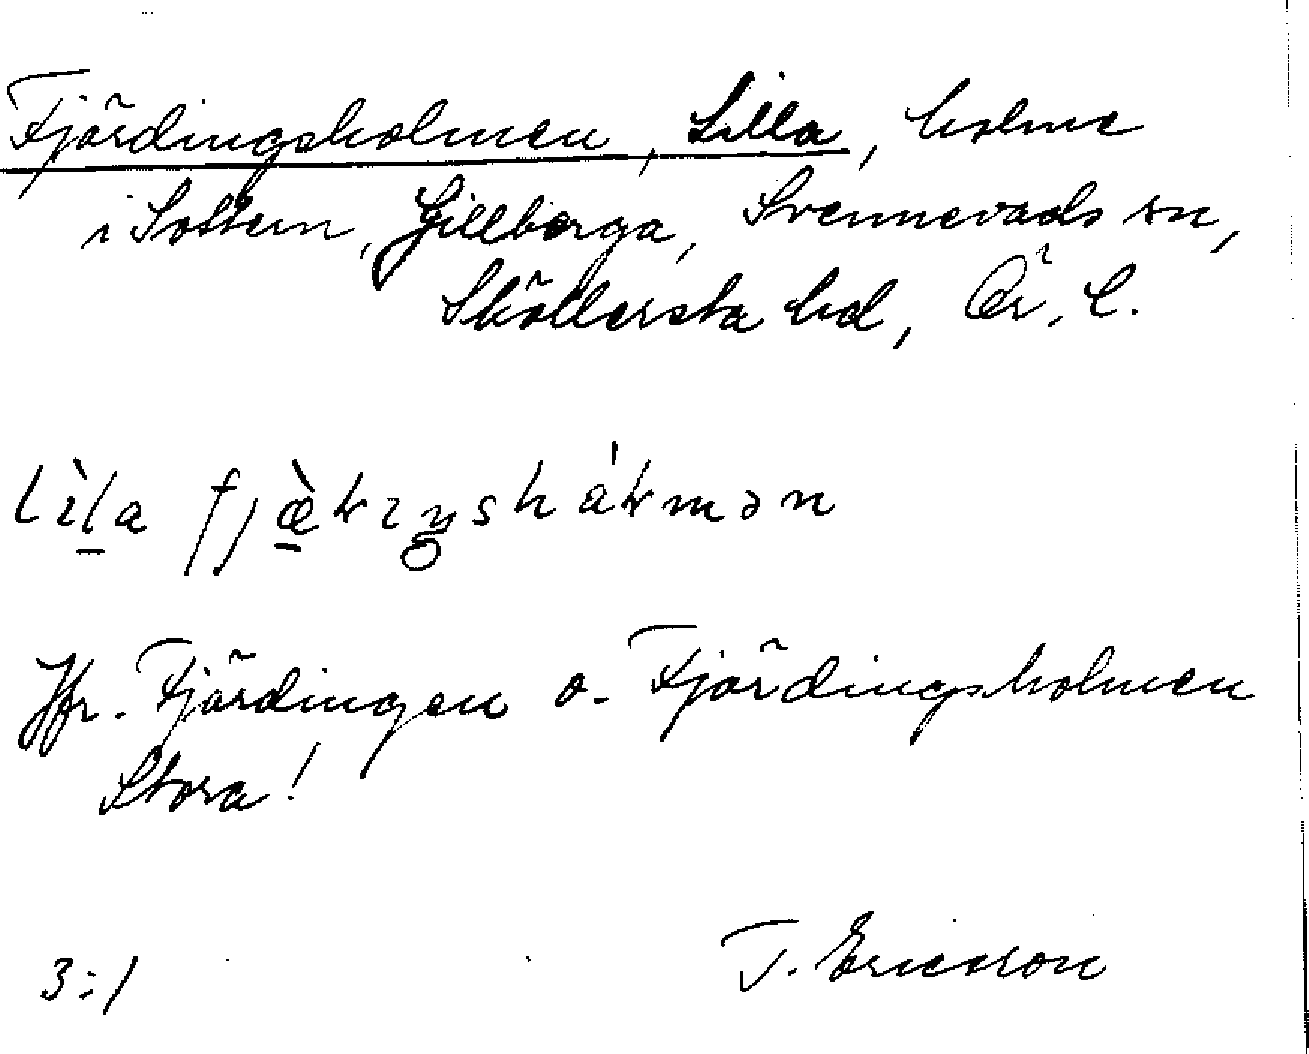 Fjärdingsholmen, Lilla, holme
i Sottern, Gillberga, Svennevads sn,
Sköllersta hd, Ör. l.
Jfr. Fjärdingen o. Fjärdingsholmen
Stora!
3:1 T. Ericsson